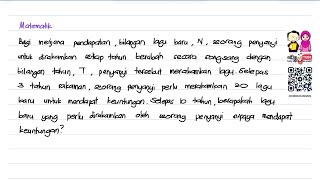 Matematik
Bagi menjana pendapatan, bilangan lagu baru, N, seorang penyanyi
untuk dirakamkan setiap tahun berubah secara songsang dengan
bilangan tahun, T, penyanyi tersebut merakamkan lagu. Selepas
3 tahun rakaman, seorang penyanyi perlu merakamkan 20 lagu
baru untuk mendapat keuntungan. Selepas 10 tahun, berapakah lagu
baru yang perlu dirakamkan oleh seorang penyanyi supaya mendapat
keuntungan?